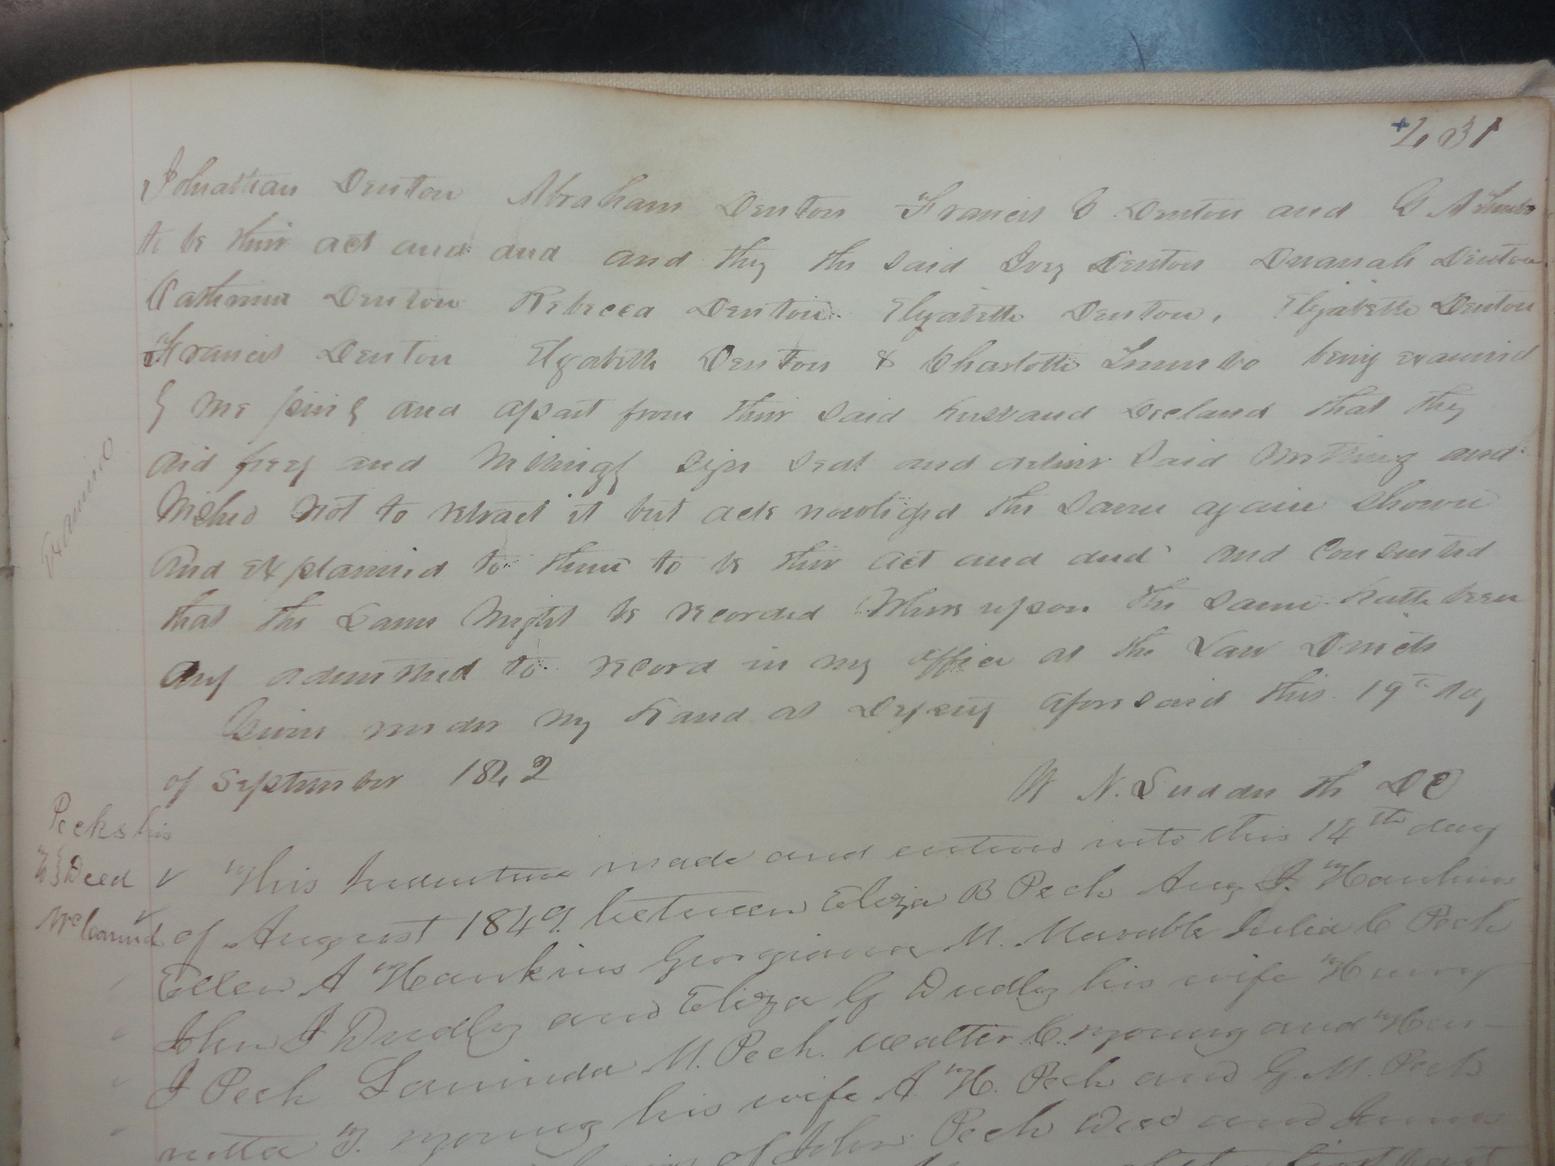 231
Johnathan Denton Abraham Denton Francis C Denton and G A
to be thier act and and and they the said Ivey Denton Dnanah Denton
Catherine Denton Rebecca Denton. Elizabeth Denton, Elizabeth Denton
Francis Denton Elizabeth Denton & Charlotte being examined
by me privily and apart from thier said husband Declared that they
did freely and willingly sign seal and deliver said writing and
wished not to retract it but acknowledged the same again shown
and explained to them to be thier act and deed and consented
that the same might be recorded Whereupon the same hath been
duly admitted to record in my office at the Law Directs
Given under my hand as Deputy aforesaid this 19th day
of September 1842
W N. DC
Examined
Pecks his
To } Deed
This Indenture made and entered into this 14th day
of August 1849 between Eliza B Peck Aug J. Hankins
Ellen A Hankins Georgiana M. Marable Julia C Peck
John J Dudley and Eliza G Dudley his wife Henry
J Peck Lavinda M. Peck. Walter C. Young and Hen-
rietta T. Young his wife A H. Peck and G. M. Peck
of John Peck Decd and